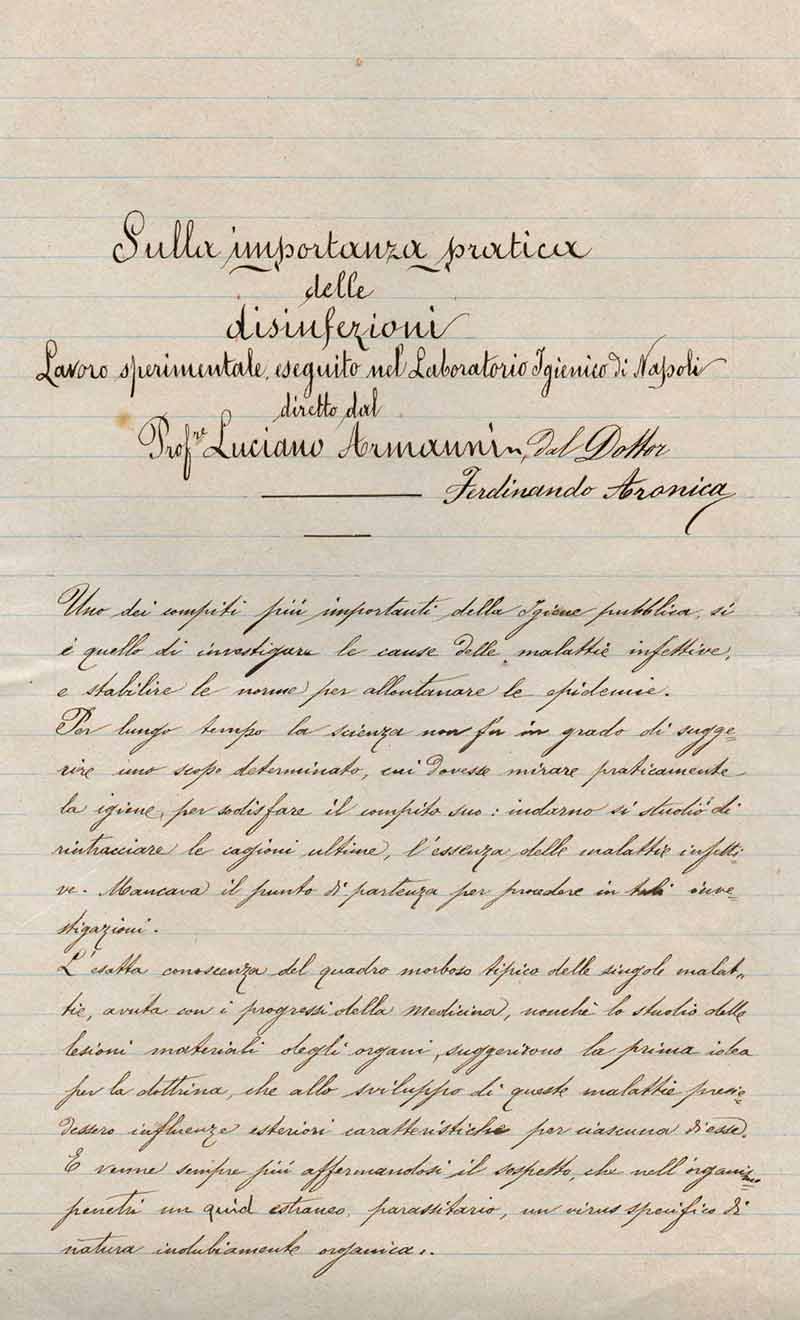 Sulla importanza pratica
delle
disinfezioni
Lavoro sperimentale, eseguito nel Laboratorio Igienico di Napoli
diretto dal
Prof.re Luciano Armanni, dal Dottor
Ferdinando Aronica
Uno dei compiti più importanti della Igiene pubblica, si
è quello di investigare le cause delle malattie infettive,
e stabilire le norme per allontanare le epidemie.
Per lungo tempo la scienza non fu in grado di sugge=
rire uno scopo determinato, cui dovesse mirare praticamente
la igiene, per sodisfare il compito suo: indarno si studiò di
rintracciare le cagioni ultime, l'essenza delle malattie infetti
ve. Mancava il punto di partenza per procedere in tali inve=
stigazioni.
L'esatta conoscenza del quadro morboso tipico delle singole malat=
tie, avuta con i progressi della medicina, nonchè lo studio delle
lesioni materiali degli organi, suggerirono la prima idea
per la dottrina, che allo sviluppo di queste malattie presie=
dessero influenze esteriori caratteristiche per ciascuna di esse.
E venne sempre più affermandosi il sospetto, che nell'organismo
penetri un quid estraneo, parassitario, un virus specifico di
natura indubiamente organica.